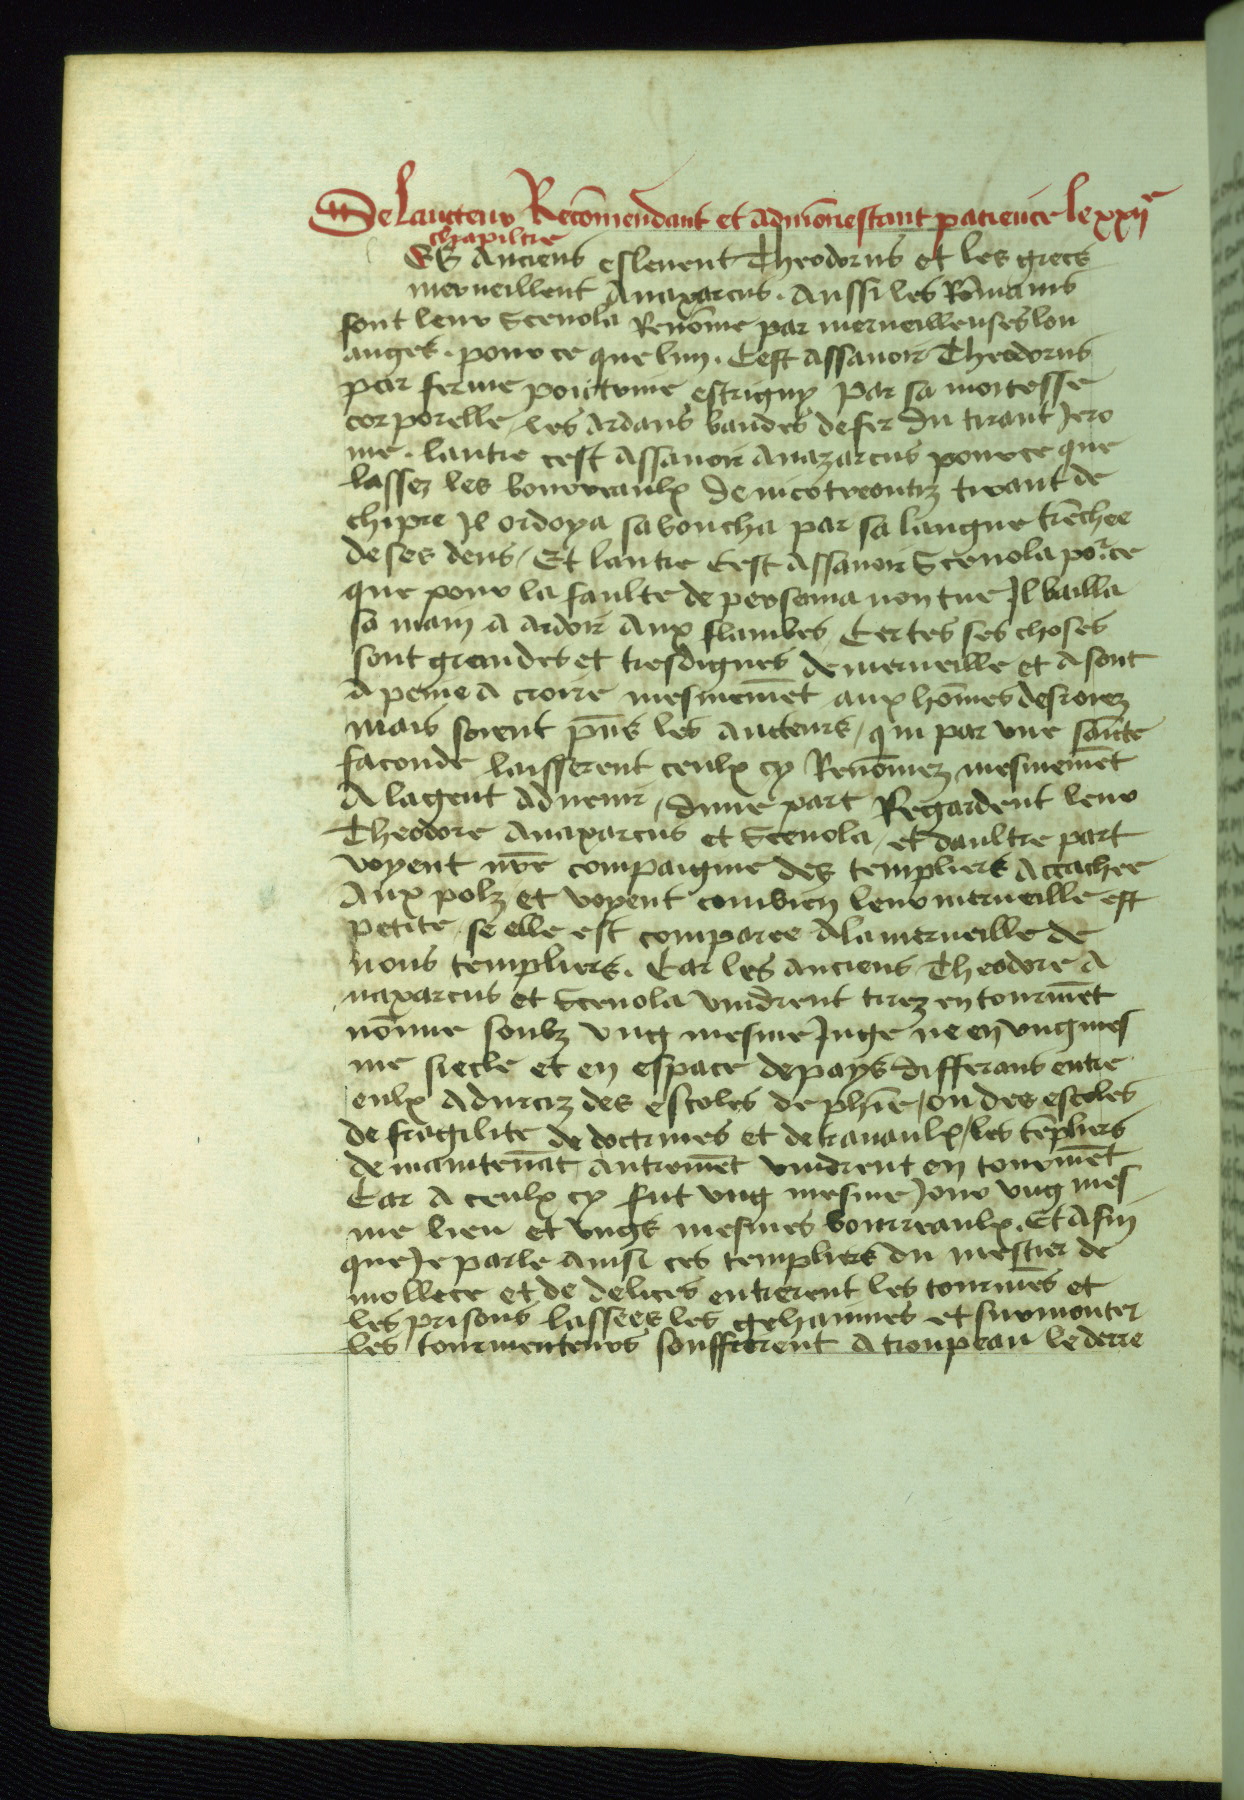 De lautteur Recōmendant et admōnestant patience le xxiie
chapiltre
ES anciens eslevent Theodorus et les grecs
merveillent Anaxarcus. Aussi les Rōmains
font leur Scevola Renōme par merveilleuses lou
anges. pour ce que lun. Cest assavoir Theodorus
par ferme poictrine estrigny par sa mortesse
corporelle, les ardans bandes de fer du tirant Jero
me. lautre cest assavoir anazarcus pour ce que
lassez les bourreaulx de nicotreontiz tirant de
chipre Il ordoya sa boucha par sa langue trēchee
de ses dens, Et lautre Cest assavoir Scevola por ce
que pour la faulte de persenna non tue Il bailla
sa main a ardoir aux flambes Certes ses choses
sont grandes et tresdignes de merveille et a sont
a peine a croire mesmemēt aux hōmes desroiez
mais soient pn̄s les aucteurs, qui par une saincte
faconde laisserent ceulx cy Renōmez mesmemēt
A la gent advenir, dune part Regardent leur
Theodore anaxarcus et Scevola, et daultre part
voyent nr̄e compaignie des templiers attachee
Aux polz et voyent combien leur merveille est
petite se elle est comparee a la merveille de
nous templiers. Car les anciens Theodore A
naxarcus et Scevola vindrent tirez en tourmēt
nōmie soubz ung mesme Juge ne en ung mes
me siecle et en espace de pays differans entre
eulx adurciz des escoles de phīe, ou des escoles
de fragilite de doctrines et de travaulx, les tēpliers
de maintenāt autremēt vindrent en tourmēt
Car a ceulx cy fut ung mesme Jour ung mes
me lieu et ungs mesmes bourreaulx. Et afin
que Je parle ainsi ces templiers du mestier de
mollece et de delices entrerent les tourmēs et
les prisons lassees les gehainnes et surmonter
les tourmenteurs souffrirent a troupeau le derre